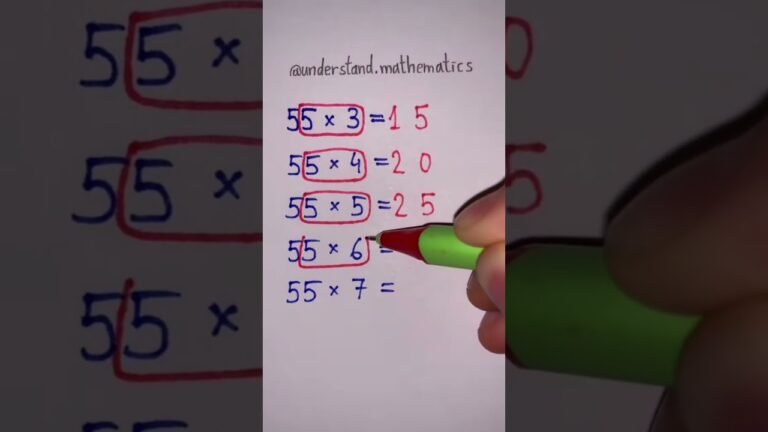 @understand.mathematics
55 × 3 = 1 5
55 × 4 = 2 0
55 × 5 = 2 5
55 × 6 =
55 × 7 =